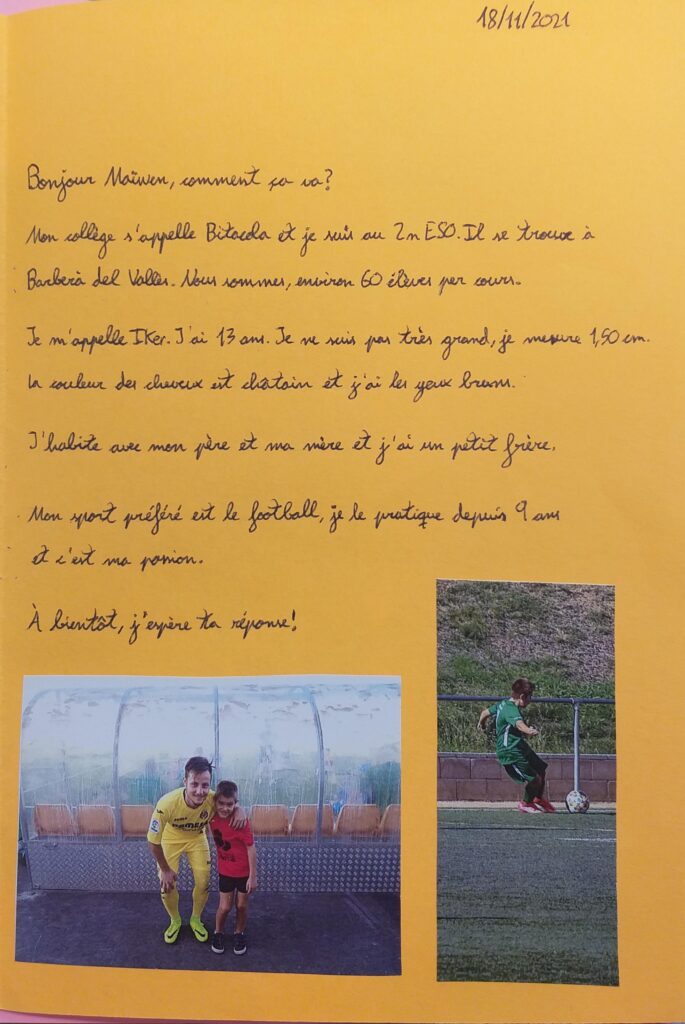 18/11/2021
Bonjour Maïwen, comment ça va?
Mon collège s'appelle Bitacola et je suis au 2n ESO. Il se trouve à
Barberà del Vallès. Nous sommes, environ 60 élèves per cours.
Je m'appelle IKer. J'ai 13 ans. Je ne suis pas très grand, je mesure 1,50 cm.
La couleur des cheveux est châtain et j'ai les yeux bruns.
J'habite avec mon père et ma mère et j'ai un petit frère.
Mon sport préféré est le football, je le pratique depuis 9 ans
et c'est ma passion.
À bientôt, j'espère ta réponse!